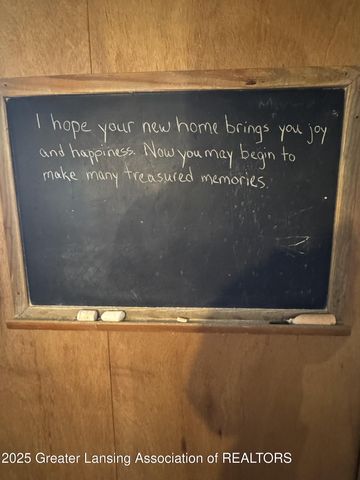 I hope your new home brings you joy
and happiness. Now you may begin to
make many treasured memories.
2025 Greater Lansing Association of REALTORS